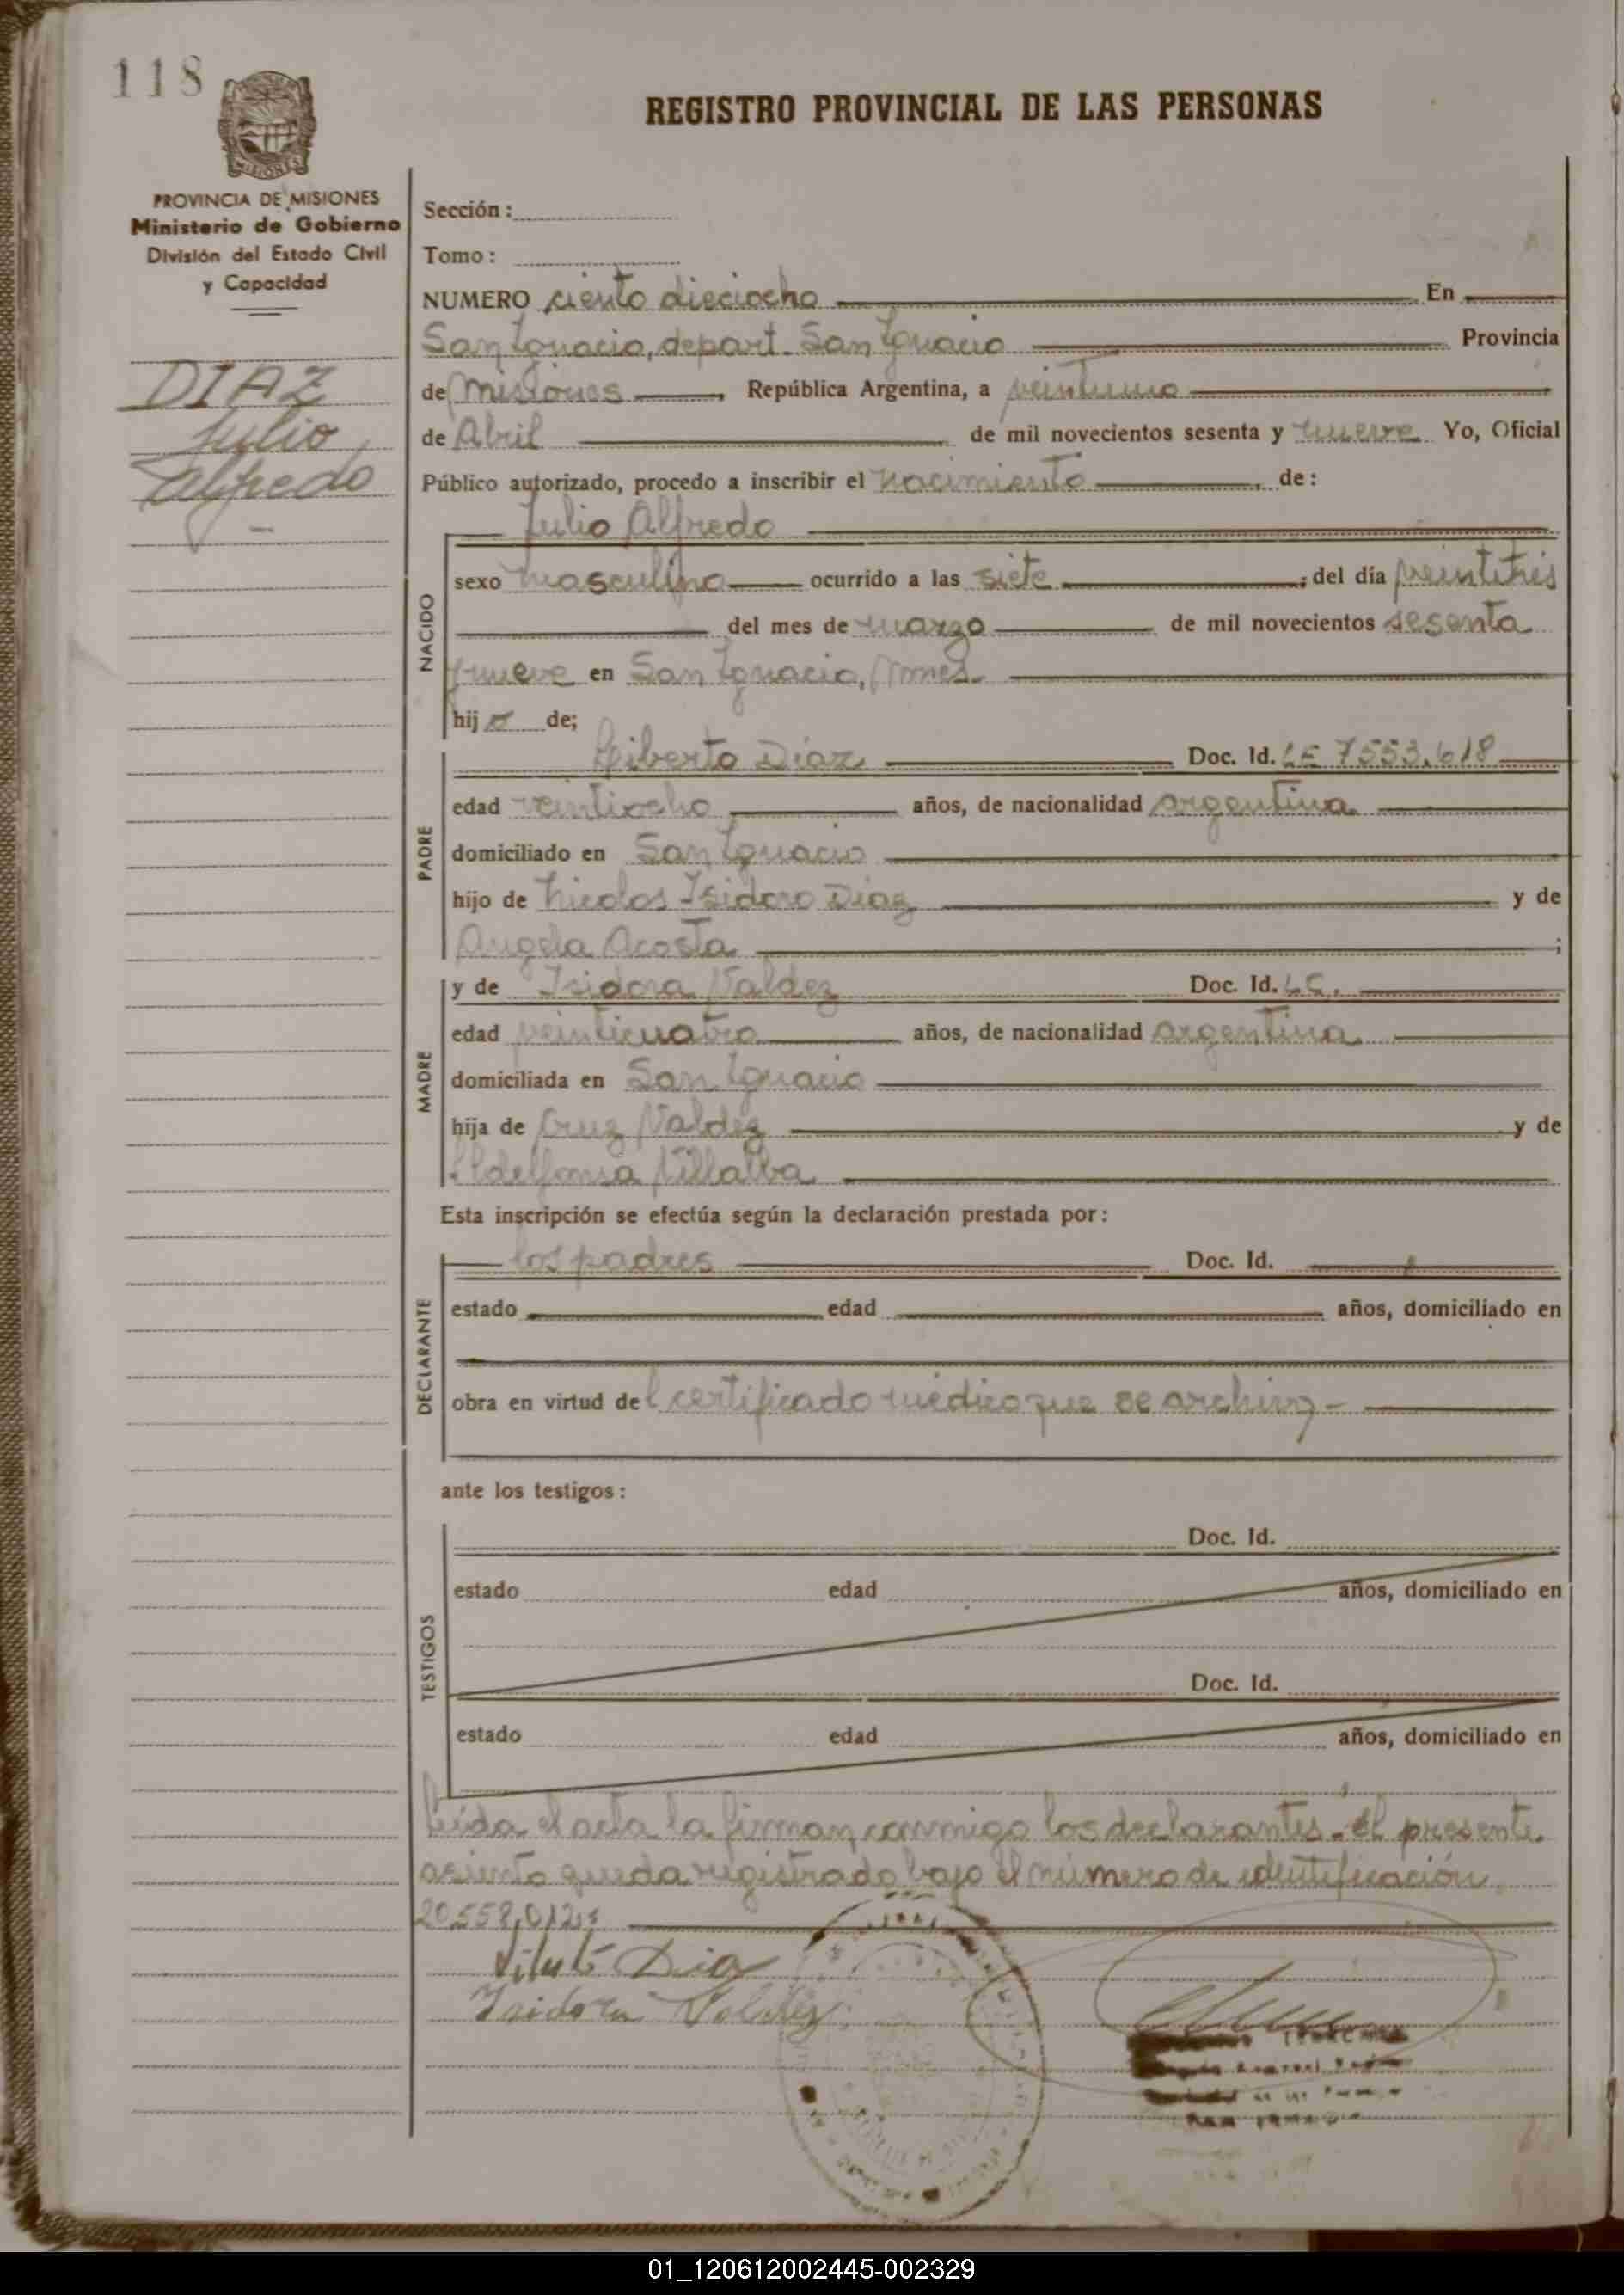 118
REGISTRO PROVINCIAL DE LAS PERSONAS
MISIONES
PROVINCIA DE MISIONES
Ministerio de Gobierno
División del Estado Civil
y Capacidad
DIAZ
Julio
Alfredo
Sección:
Tomo:
NUMERO ciento dieciocho En
San Ignacio, depart. San Ignacio Provincia
de Misiones, República Argentina, a veintiuno
de Abril de mil novecientos sesenta y nueve Yo, Oficial
Público autorizado, procedo a inscribir el nacimiento, de:
NACIDO
Julio Alfredo
sexo masculino ocurrido a las siete; del día veintitrés
del mes de marzo de mil novecientos sesenta
y nueve en San Ignacio, Mnes.
hijo de;
PADRE
Liberto Diaz Doc. Id. LE 7553.618
edad veintiocho años, de nacionalidad argentina
domiciliado en San Ignacio
hijo de Nicolas Isidoro Diaz y de
Angela Acosta;
MADRE
y de Isidora Valdez Doc. Id. LC.
edad veinticuatro años, de nacionalidad argentina
domiciliada en San Ignacio
hija de Cruz Valdez y de
Ildelfonsa Villalba
Esta inscripción se efectúa según la declaración prestada por:
DECLARANTE
los padres Doc. Id.
estado edad años, domiciliado en
obra en virtud del certificado médico que se archiva-
ante los testigos:
TESTIGOS
Doc. Id.
estado edad años, domiciliado en
Doc. Id.
estado edad años, domiciliado en
Leída el acta la firman conmigo los declarantes. El presente
asiento queda registrado bajo el número de identificación
20.558.012
Isidora Valdez
01_120612002445-002329